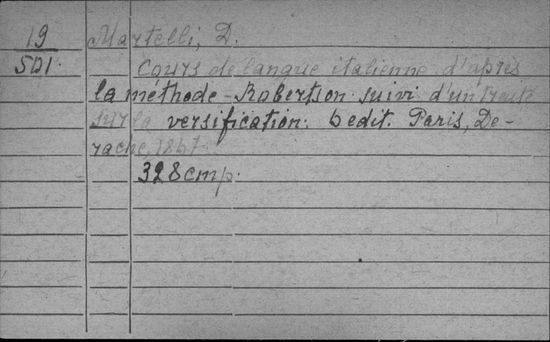 19 Martelli, D.
501. Cours de langue italienne d'après
la methode Robertson suivi d'un traité
sur la versification. 6 edit. Paris, De-
rache, 1847.
328 стр.